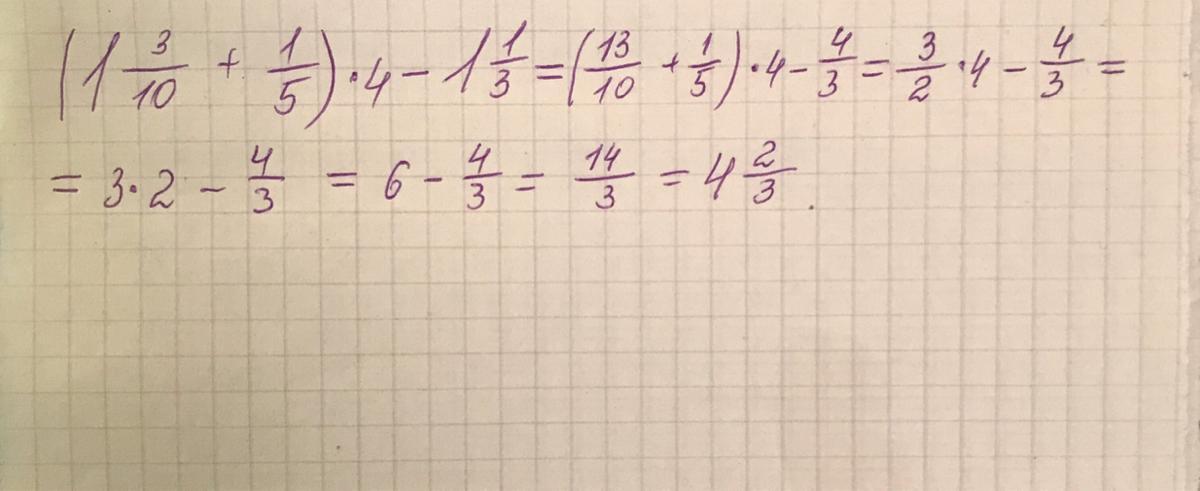 (1 3/10 + 1/5) · 4 − 1 1/3 = (13/10 + 1/5) · 4 − 4/3 = 3/2 · 4 − 4/3 =
= 3 · 2 − 4/3 = 6 − 4/3 = 14/3 = 4 2/3.